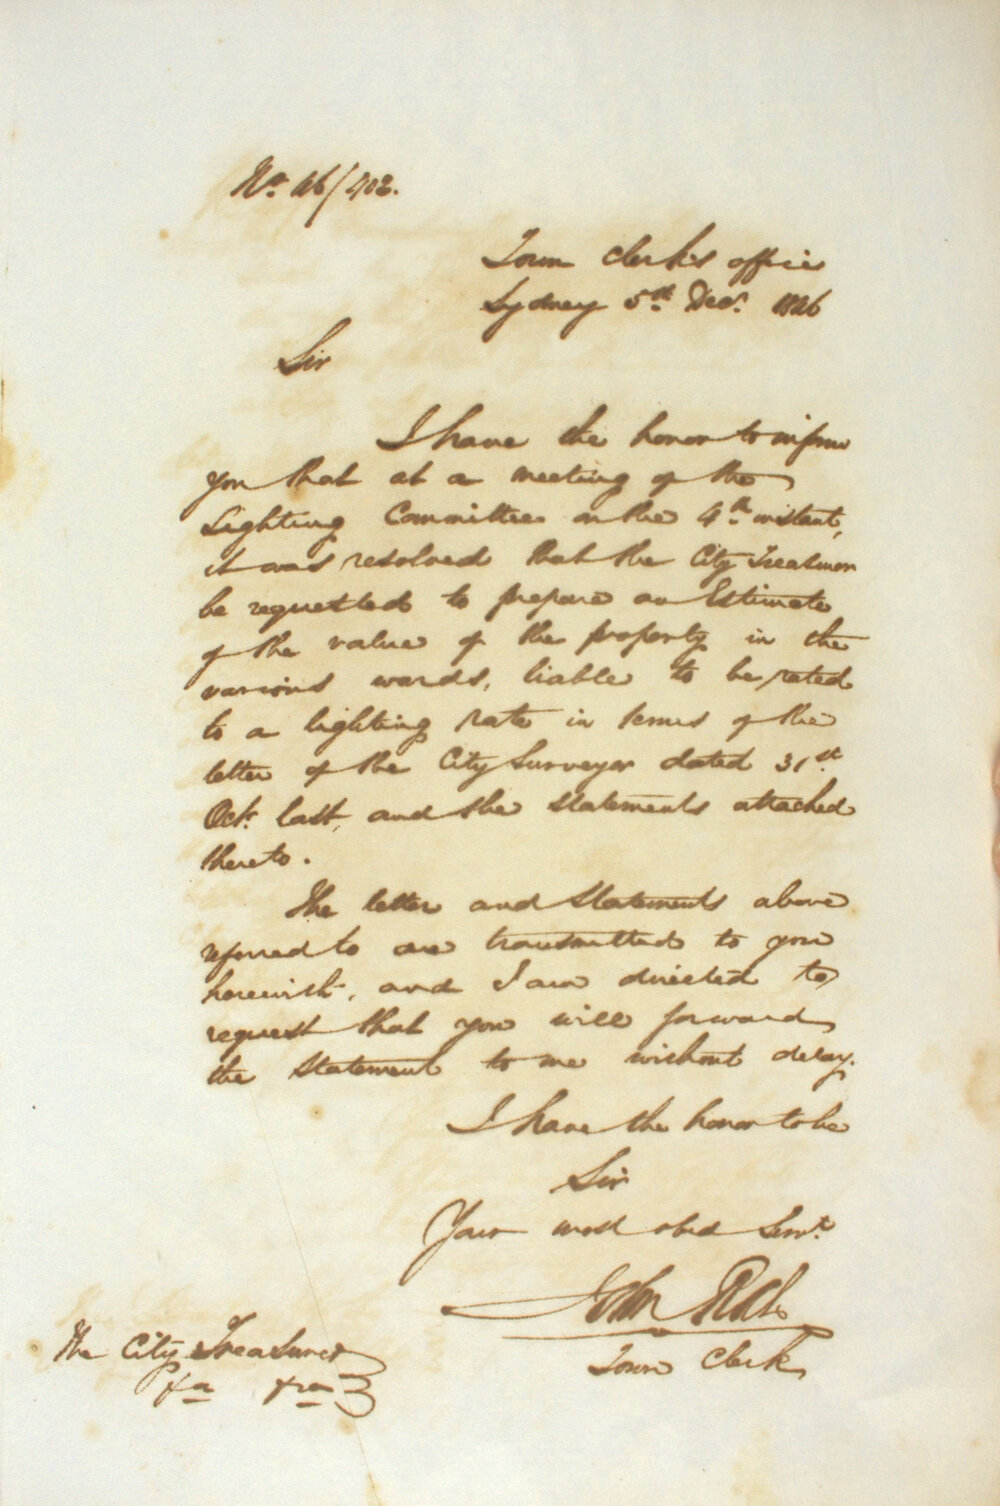 No. 46/402.
Town Clerk's office
Sydney 5th Decr. 1846
Sir
I have the honor to inform
you that at a meeting of the
Lighting Committee on the 4th instant,
it was resolved that the City Treasurer
be requested to prepare an Estimate
of the value of the property in the
various wards, liable to be rated
to a lighting rate in terms of the
letter of the City Surveyor dated 31st
Octr. last, and the Statements attached
thereto.
The letter and Statements above
referred to are transmitted to you
herewith, and I am directed to
request that you will forward
the Statement to me without delay.
I have the honor to be
Sir
Your most obed Servt.
John
Town Clerk
The City Treasurer